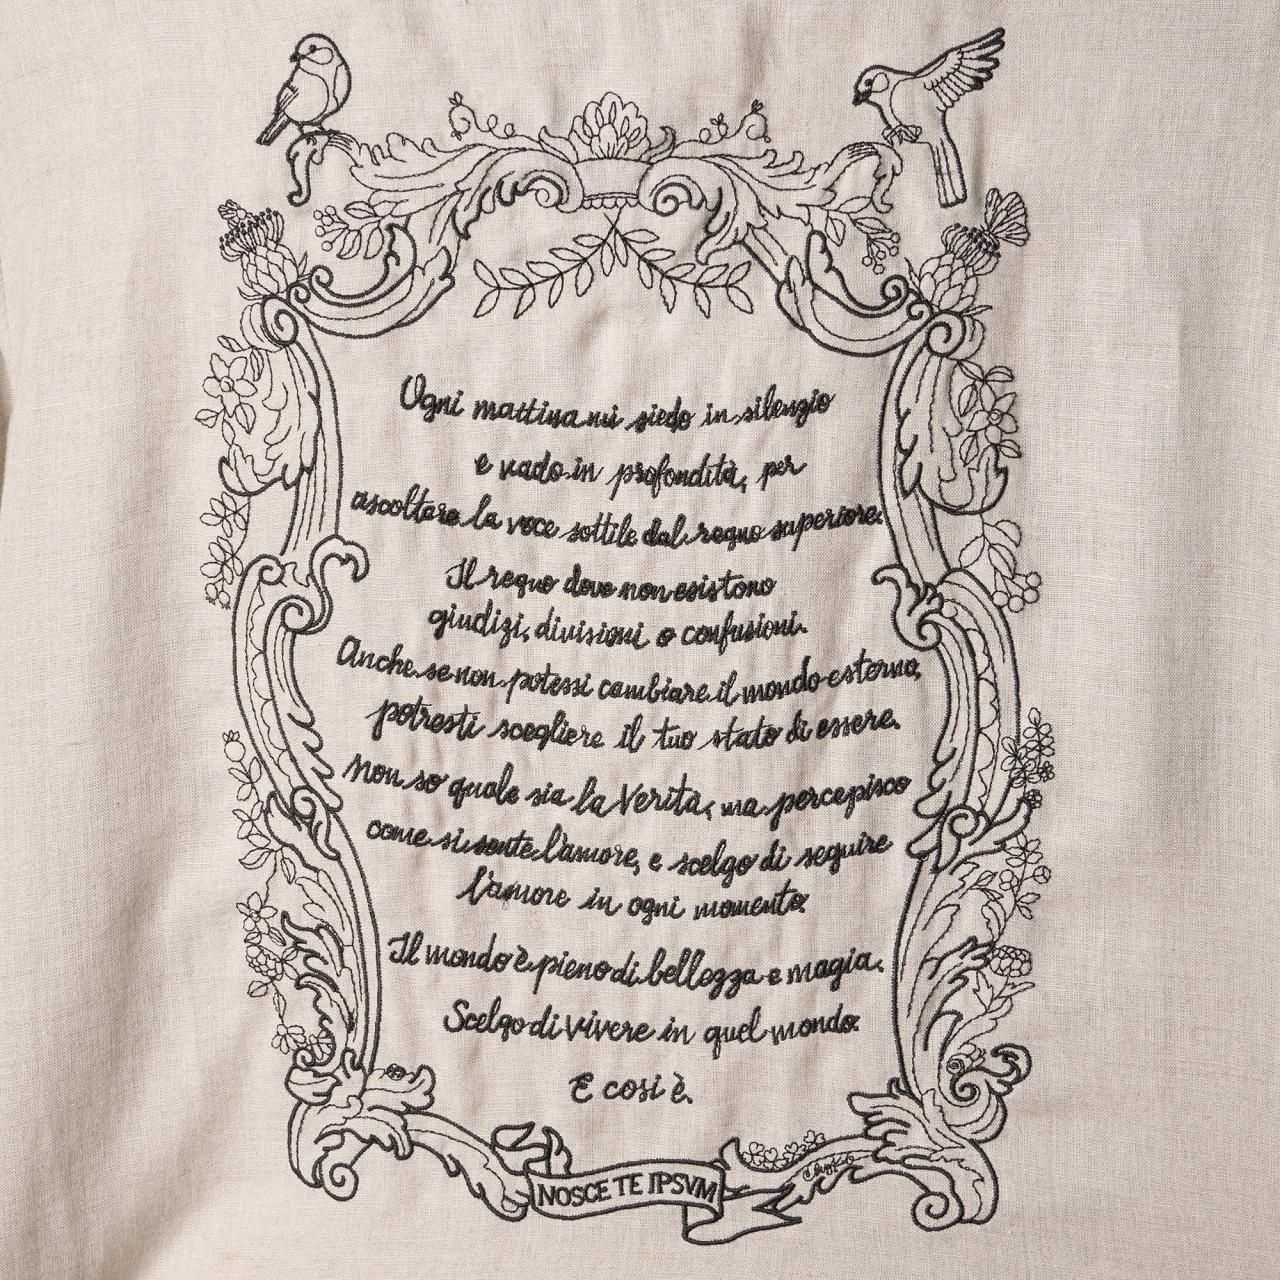 Ogni mattina mi siedo in silenzio
e vado in profondità, per
ascoltare la voce sottile dal regno superiore.
Il regno dove non esistono
giudizi, divisioni o confusioni.
Anche se non potessi cambiare il mondo esterno,
potresti scegliere il tuo stato di essere.
Non so quale sia la Verità, ma percepisco
come si sente l'amore, e scelgo di seguire
l'amore in ogni momento.
Il mondo è pieno di bellezza e magia.
Scelgo di vivere in quel mondo.
E così è.
NOSCE TE IPSVM